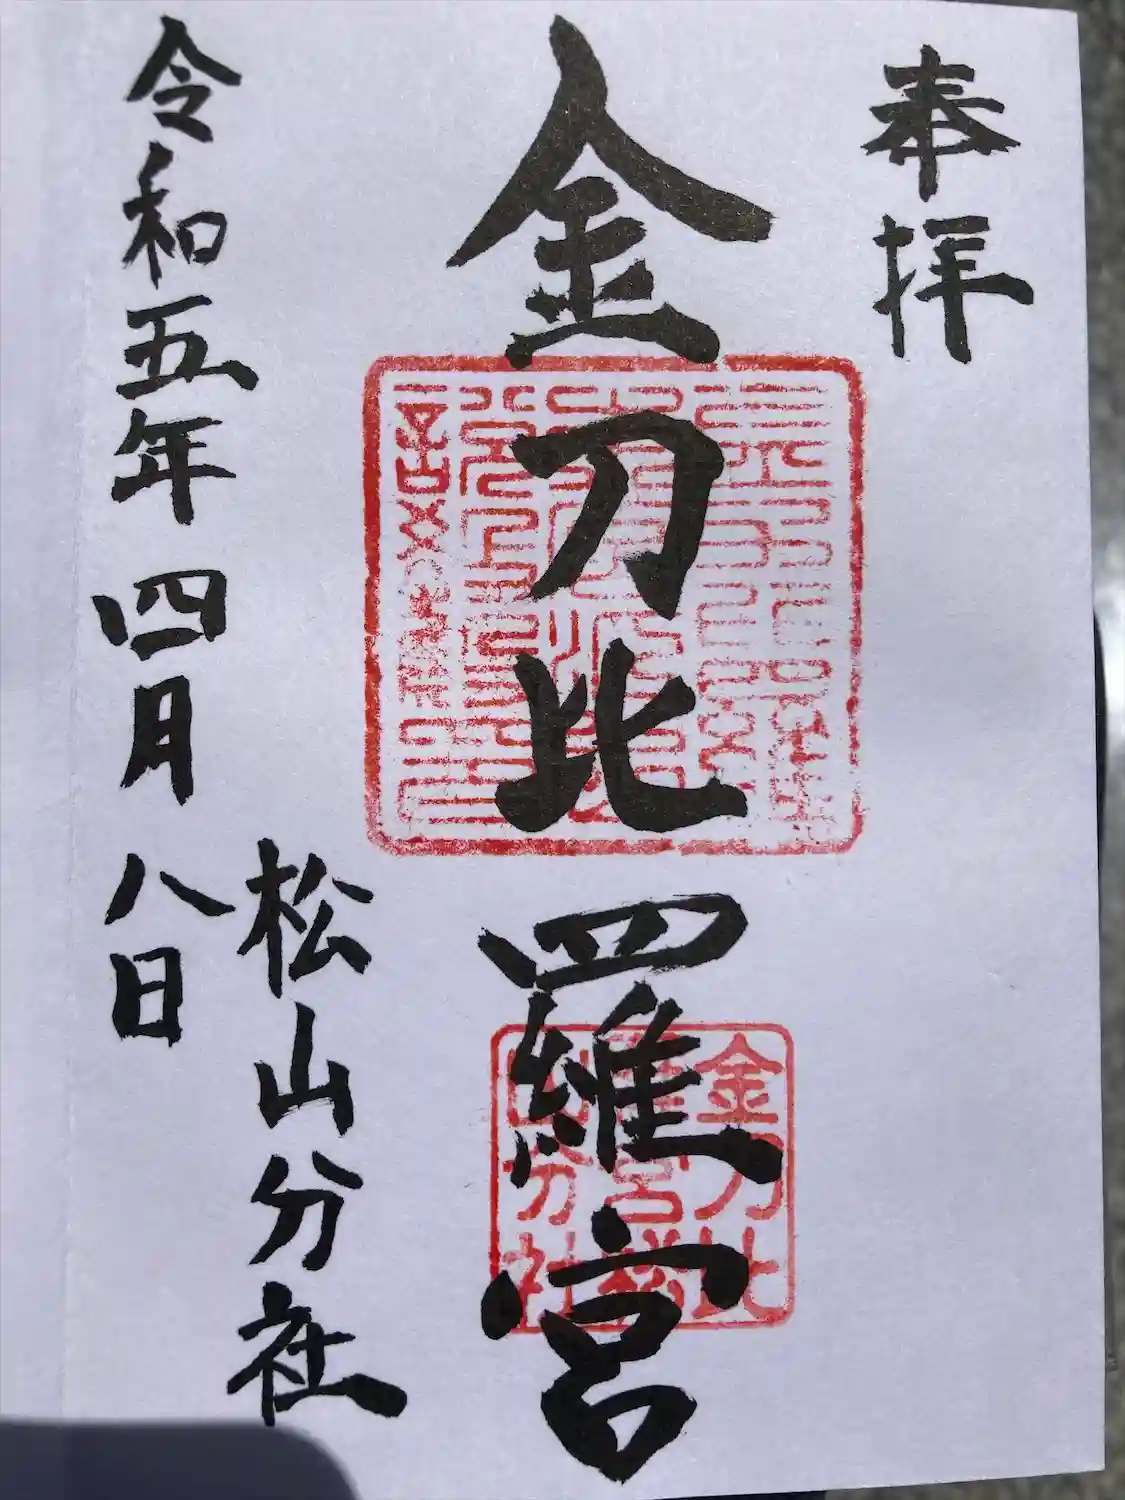 奉拝
金刀比羅宮
松山分社
令和五年四月八日
金刀比
羅宮松
山分社